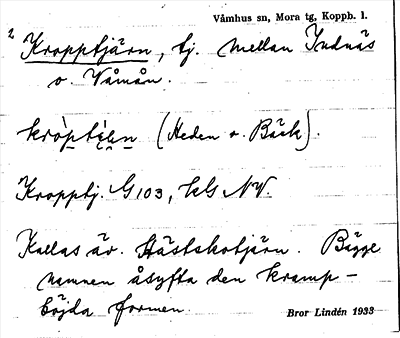 Våmhus sn, Mora tg, Koppb. l.
2 Kropptjärn, tj. mellan Indnäs
o. Våmån.
(Heden o. Bäck).
Kropptj. G103, KG NV.
Kallas äv. Hästskotjärn. Bägge
namnen åsyfta den kramp-
böjda formen.
Bror Lindén 1933